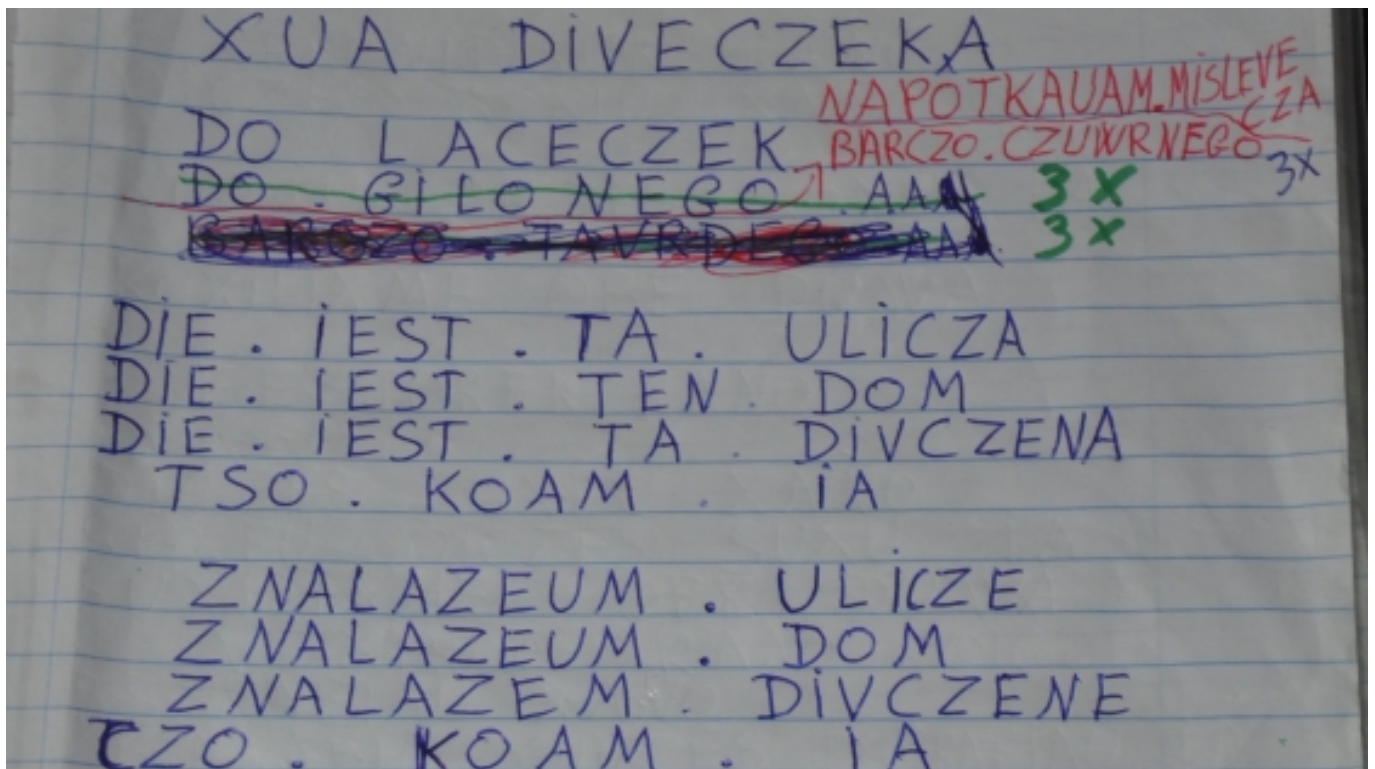 XUA DIVECZEKA
NAPOTKAUAM.MISLEVE
CZA
DO LACECZEK
BARCZO.CZUWRNEGO
3X
DO . GILONEGO . AAA 3X
BARCZO . TAVRDEGO AAA 3X
DIE . IEST . TA . ULICZA
DIE . IEST . TEN . DOM
DIE . IEST . TA . DIVCZENA
TSO . KOAM . IA
ZNALAZEUM . ULICZE
ZNALAZEUM . DOM
ZNALAZEM . DIVCZENE
CZO . KOAM . IA